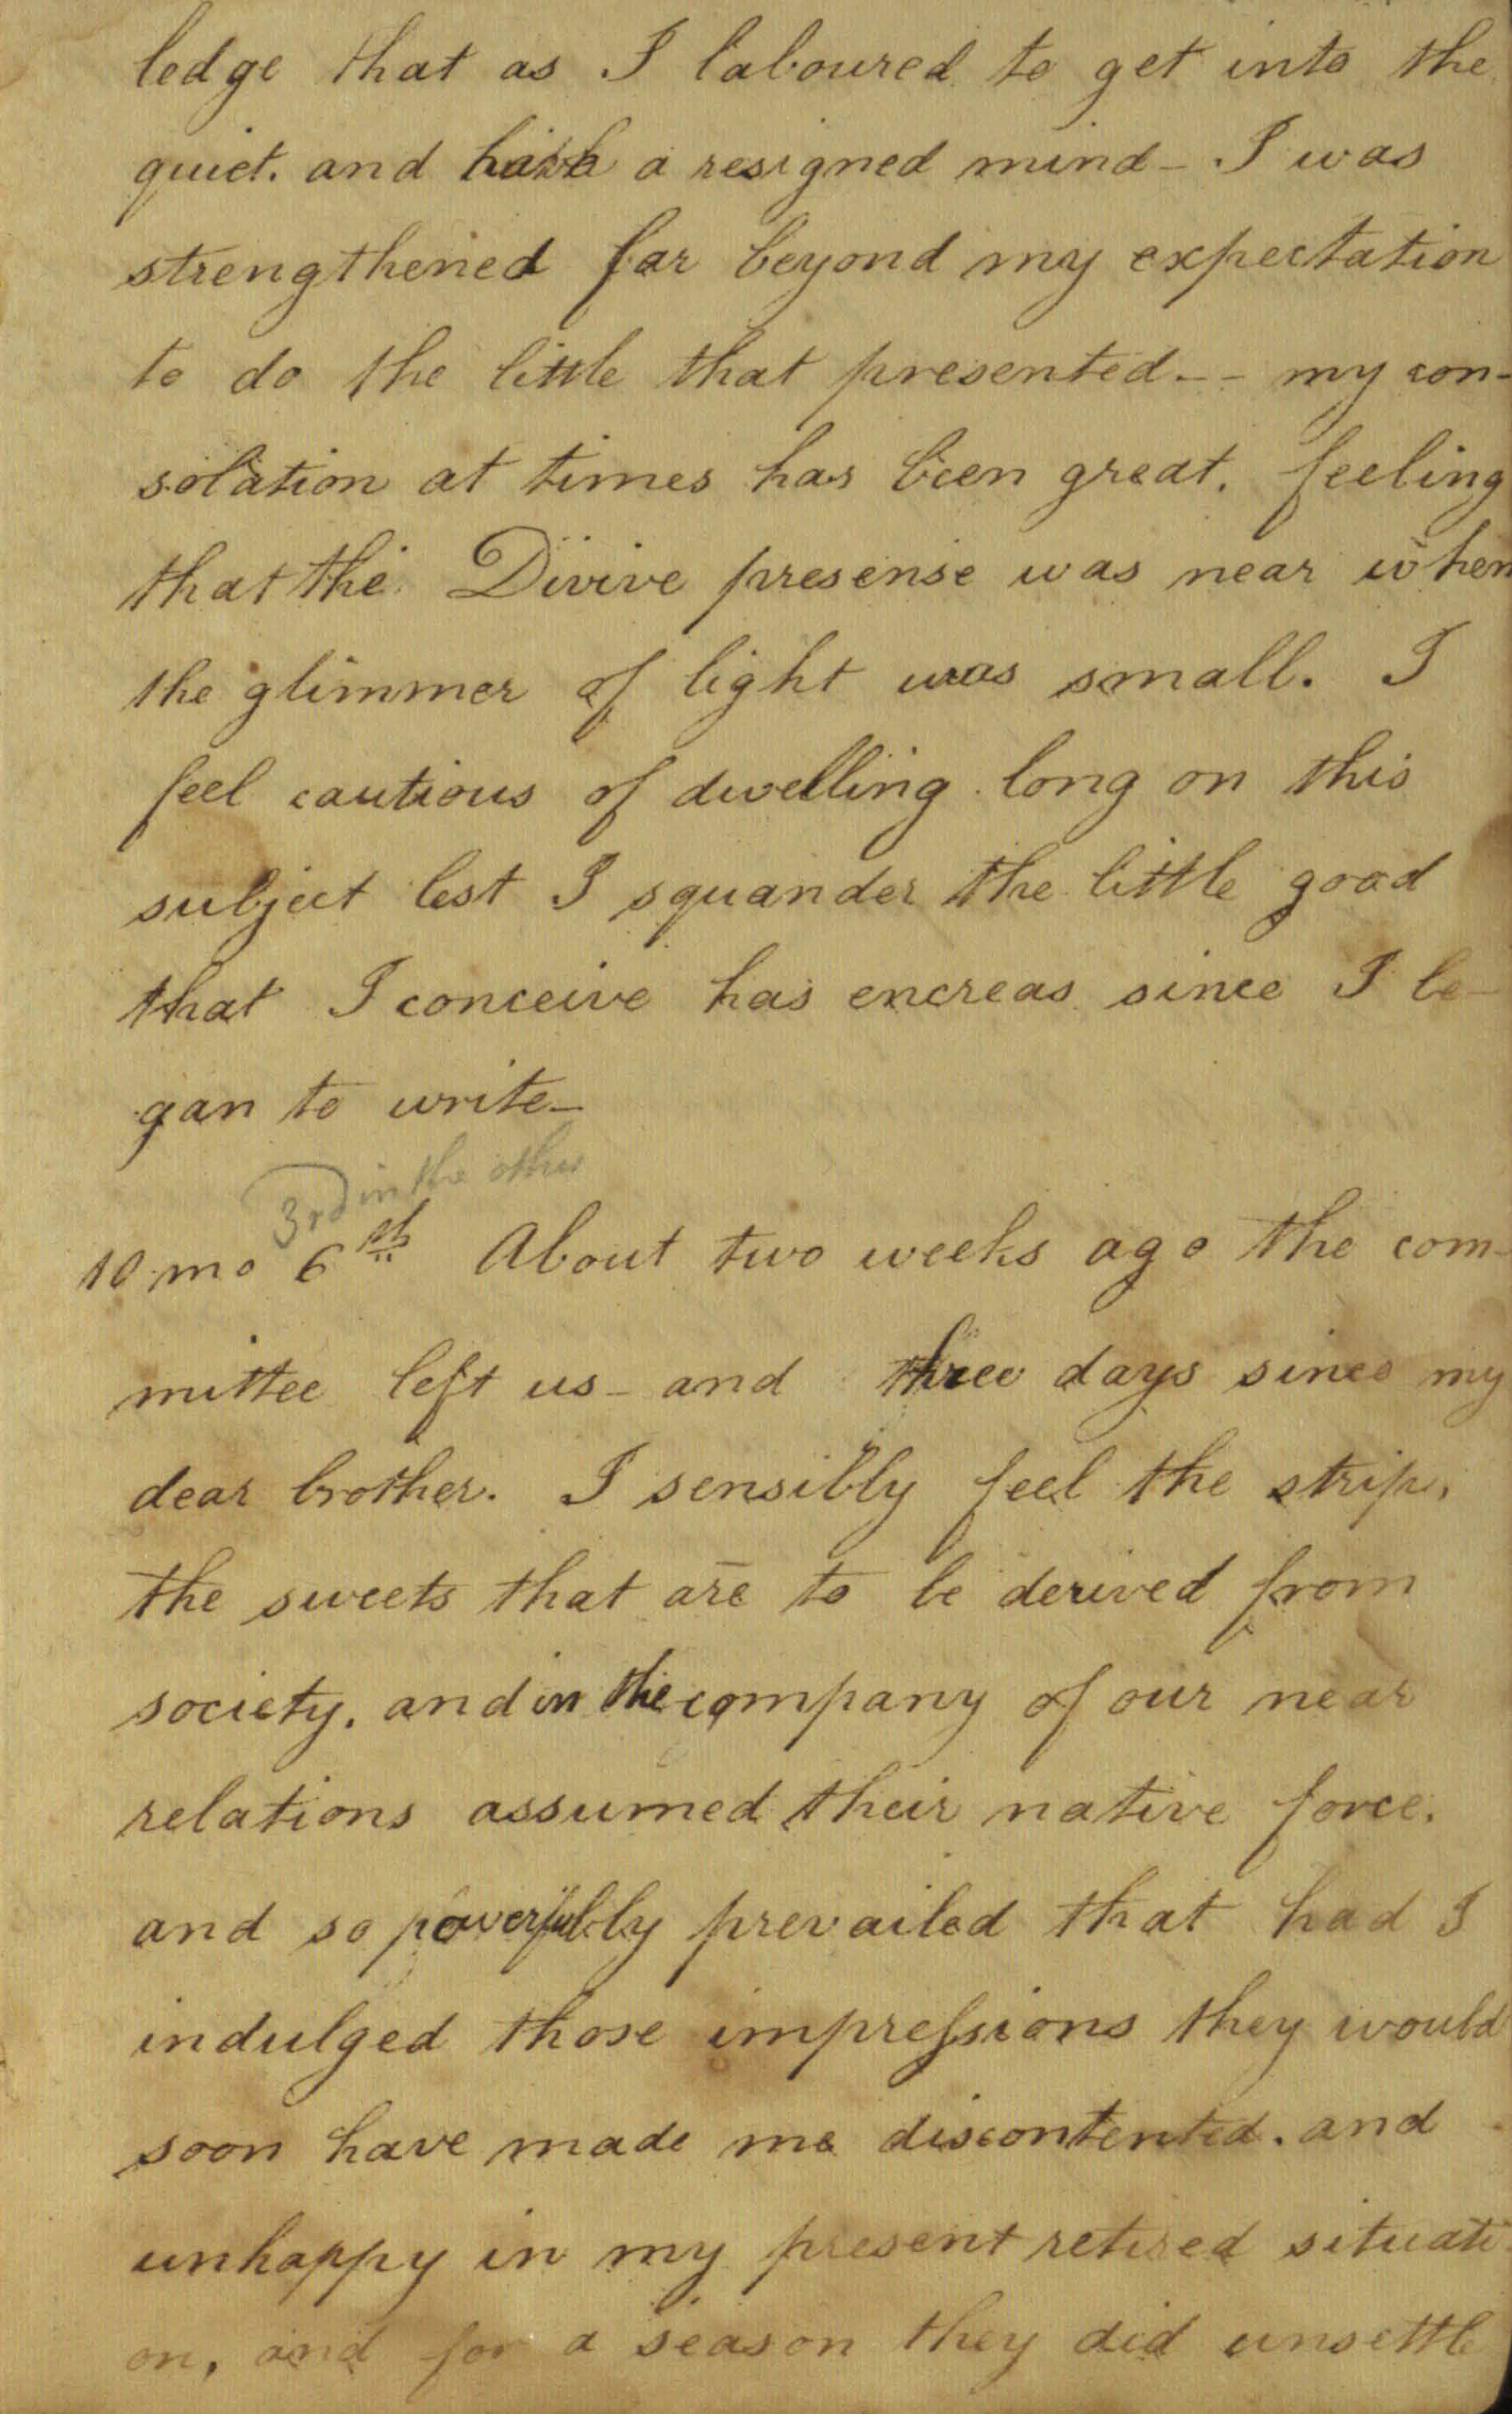 ledge that as I laboured to get into the
quiet. and have a resigned mind - I was
strengthened far beyond my expectation
to do the little that presented -- my con-
solation at times has been great. feeling
that the Divive presense was near when
the glimmer of light was small. I
feel cautious of dwelling long on this
subject lest I squander the little good
that I conceive has encreas since I be-
gan to write -
3rd in the other
10 mo 6th About two weeks ago the com-
mittee left us - and three days since my
dear brother. I sensibly feel the strip,
the sweets that are to be derived from
society. and in the company of our near
relations assumed their native force.
and so powerfully prevailed that had I
indulged those impressions they would
soon have made me discontented. and
unhappy in my present retired situati-
on, and for a season they did unsettle